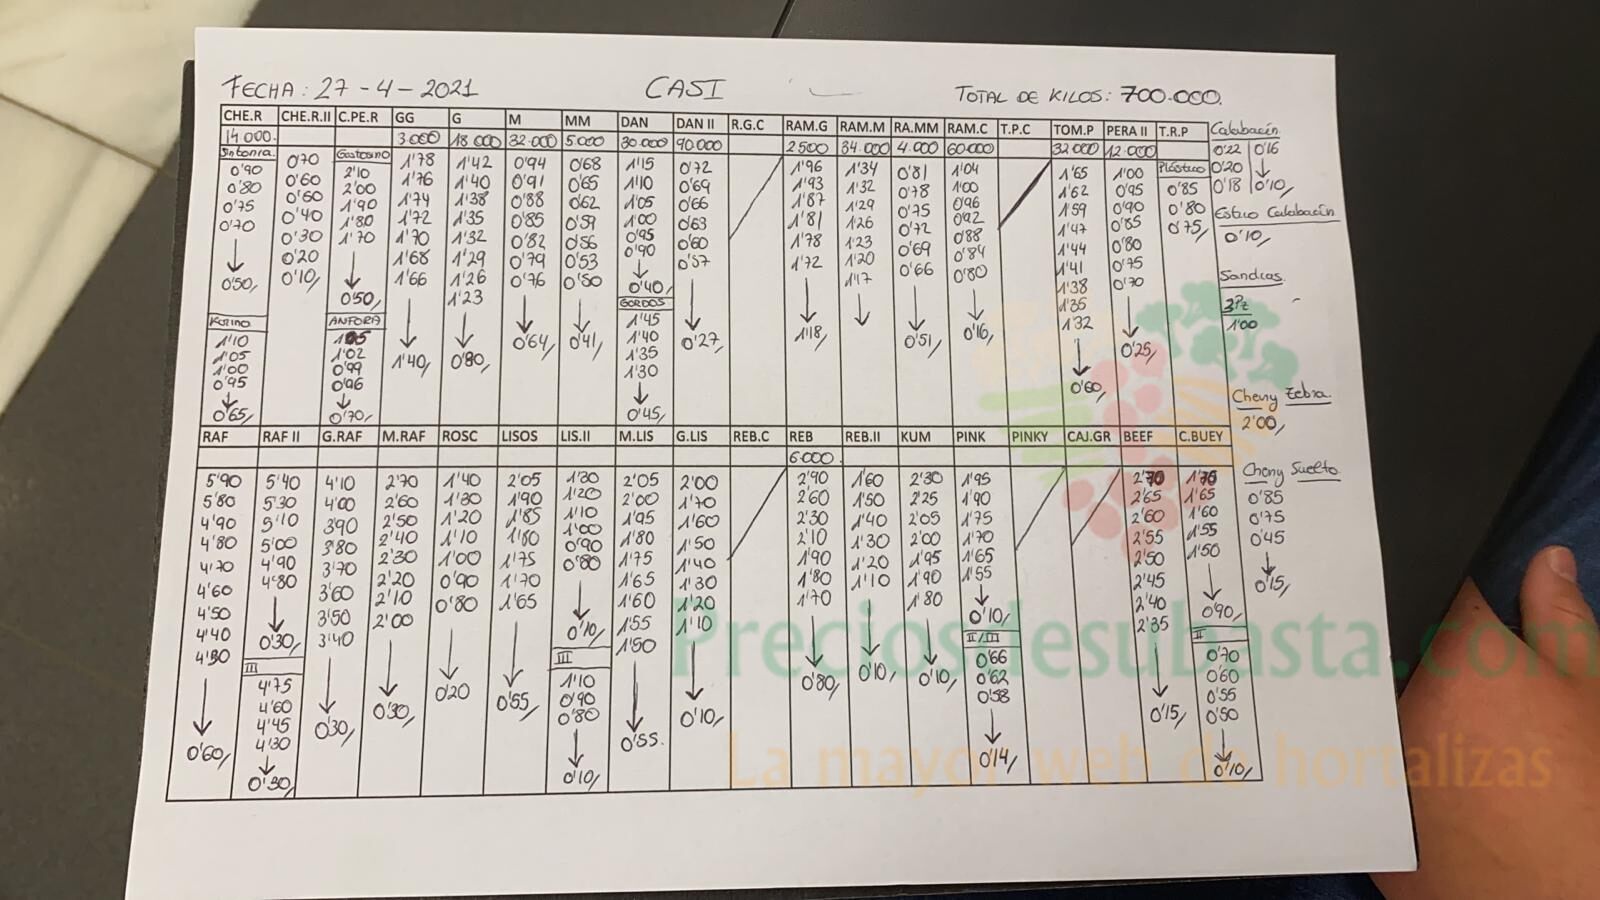 FECHA: 27-4-2021 CASI TOTAL DE KILOS: 700.000.
CHE.R CHE.R.II C.PE.R GG G M MM DAN DAN II R.G.C RAM.G RAM.M RA.MM RAM.C T.P.C TOM.P PERA II T.R.P Calabacín
14000. 3.000 18000 32.000 5.000 30.000 90.000 2500 34.000 4.000 60000 32.000 12.000
Sintonía
0'90
0'80
0'75
0'70
0'50,
Kerino
1'10
1'05
1'00
0'95
0'65,
0'70
0'60
0'60
0'40
0'30
0'20
0'10,
2'10
2'00
1'90
1'80
1'70
0'50,
ANFORA
1'05
1'02
0'99
0'96
0'70,
1'78
1'76
1'74
1'72
1'70
1'68
1'66
1'40,
1'42
1'40
1'38
1'35
1'32
1'29
1'26
1'23
0'80,
0'94
0'91
0'88
0'85
0'82
0'79
0'76
0'64,
0'68
0'65
0'62
0'59
0'56
0'53
0'50
0'41,
1'15
1'10
1'05
1'00
0'95
0'90
0'40,
GORDOS
1'45
1'40
1'35
1'30
0'45,
0'72
0'69
0'66
0'63
0'60
0'57
0'27,
1'96
1'93
1'87
1'81
1'78
1'72
1'18,
1'34
1'32
1'29
1'26
1'23
1'20
1'17
0'81
0'78
0'75
0'72
0'69
0'66
0'51,
1'04
1'00
0'96
0'92
0'88
0'84
0'80
0'16,
1'65
1'62
1'59
1'47
1'44
1'41
1'38
1'35
1'32
0'60,
1'00
0'95
0'90
0'85
0'80
0'75
0'70
0'25,
Plástico
0'85
0'80
0'75,
0'22 0'16
0'20
0'18 0'10,
Calabacín
0'10,
Sandías
3ªPz
1'00
Cherry Zebra.
2'00,
Cherry Suelto
0'85
0'75
0'45
0'15,
RAF RAF II G.RAF M.RAF ROSC LISOS LIS.II M.LIS G.LIS REB.C REB REB.II KUM PINK PINKY CAJ.GR BEEF C.BUEY
6.000.
5'90
5'80
4'90
4'80
4'70
4'60
4'50
4'40
4'30
0'60,
5'40
5'30
5'10
5'00
4'90
4'80
0'30,
III
4'75
4'60
4'45
4'30
0'30,
4'10
4'00
3'90
3'80
3'70
3'60
3'50
3'40
0'30,
2'70
2'60
2'50
2'40
2'30
2'20
2'10
2'00
0'30,
1'40
1'30
1'20
1'10
1'00
0'90
0'80
0'20
2'05
1'90
1'85
1'80
1'75
1'70
1'65
0'55,
1'30
1'20
1'10
1'00
0'90
0'80
0'10,
III
1'10
0'90
0'80
0'10,
2'05
2'00
1'95
1'80
1'75
1'65
1'60
1'55
1'50
0'55.
2'00
1'70
1'60
1'50
1'40
1'30
1'20
1'10
0'10,
2'90
2'60
2'30
2'10
1'90
1'80
1'70
0'80,
1'60
1'50
1'40
1'30
1'20
1'10
0'10,
2'30
2'25
2'05
2'00
1'95
1'90
1'80
0'10,
1'95
1'90
1'75
1'70
1'65
1'55
0'10,
II/III
0'66
0'62
0'58
0'14,
2'70
2'65
2'60
2'55
2'50
2'45
2'40
2'35
0'15,
1'70
1'65
1'60
1'55
1'50
0'90,
II
0'70
0'60
0'55
0'50
0'10,
Preciosdesubasta.com
La mayor web de hortalizas